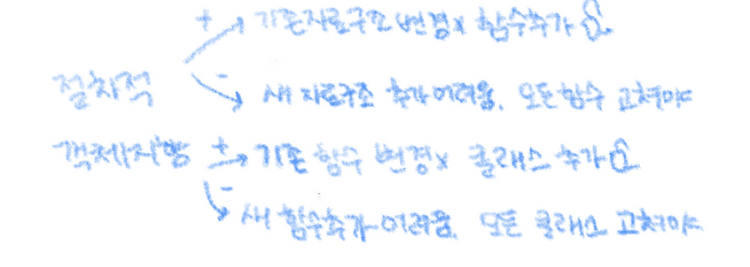 + 기존자료구조 변경x 함수추가
절차적
- 새 자료구조 추가 어려움. 모든 함수 고쳐야
객체지향 + 기존 함수 변경x 클래스 추가
- 새 함수추가 어려움. 모든 클래스 고쳐야